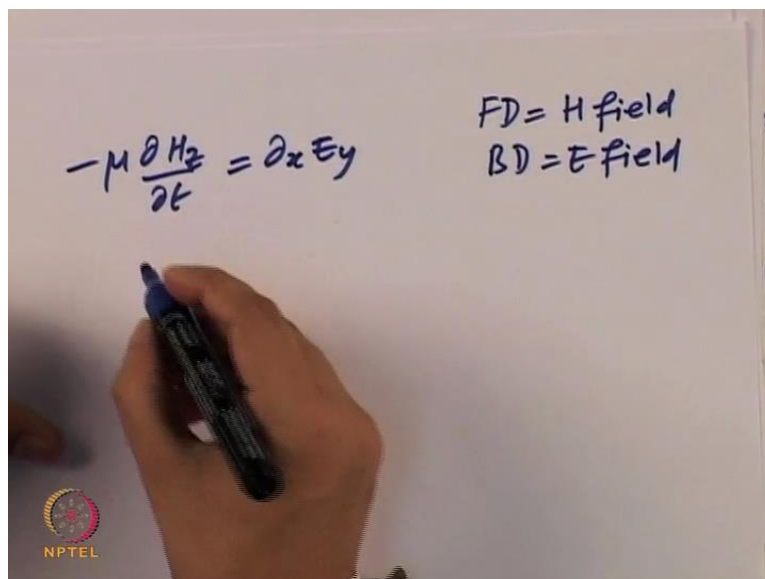 -μ ∂Hz/∂t = ∂x Ey
FD = H field
BD = E field
NPTEL